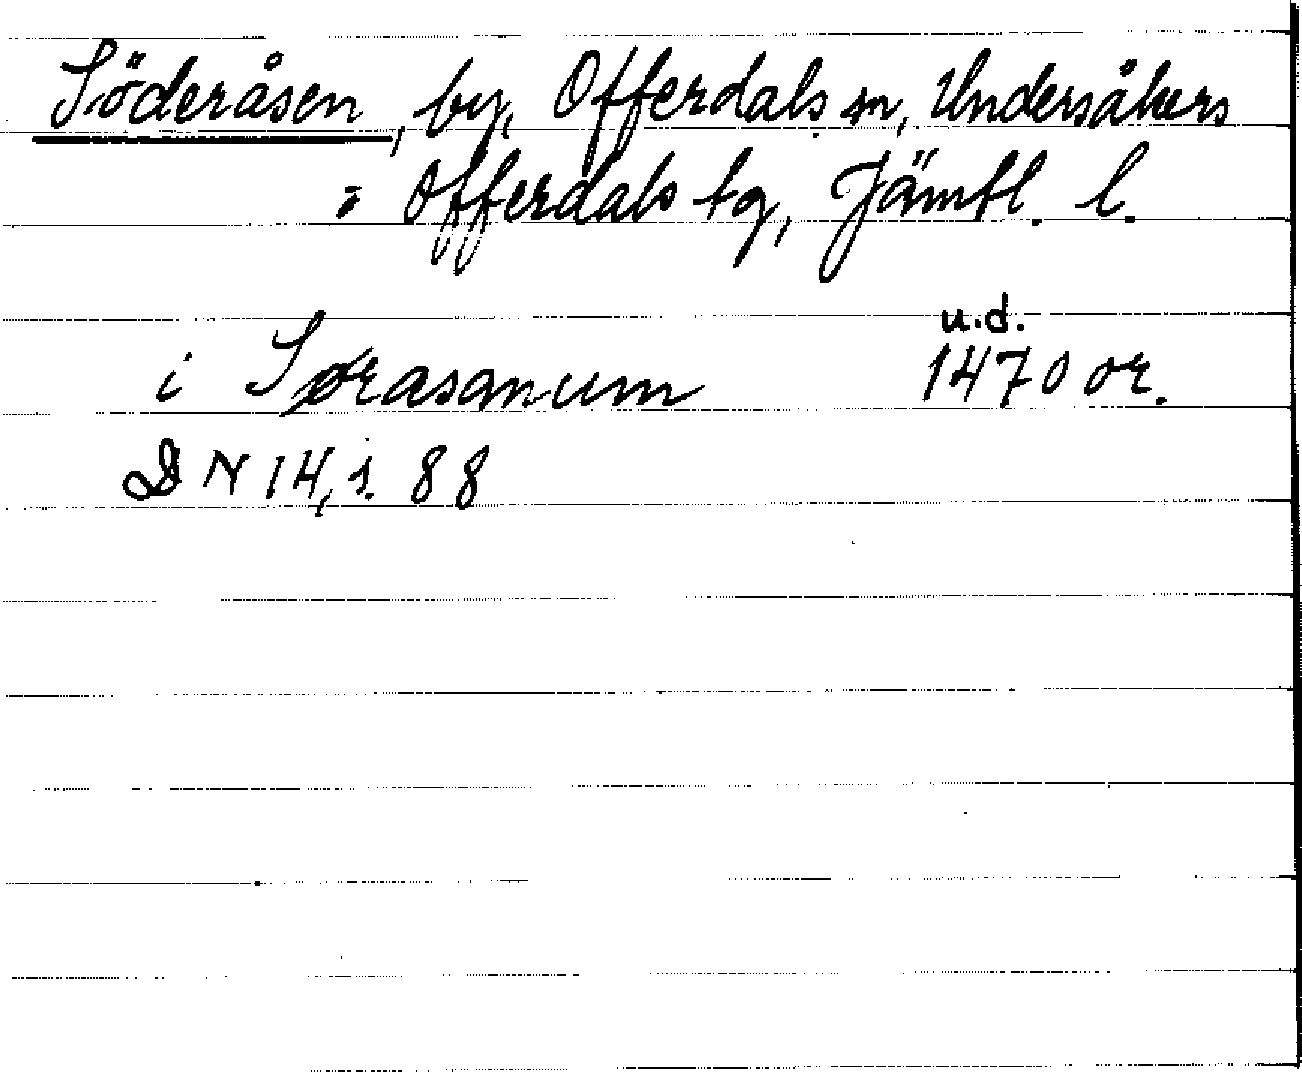 Söderåsen, by, Offerdals sn, Undersåkers
o Offerdals tg, Jämtl. l.
u.d.
i Sørasanum 1470 or.
DN 14, s. 88